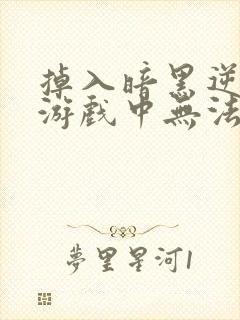 掉入暗黑逆
游戲中無法
夢里星河1